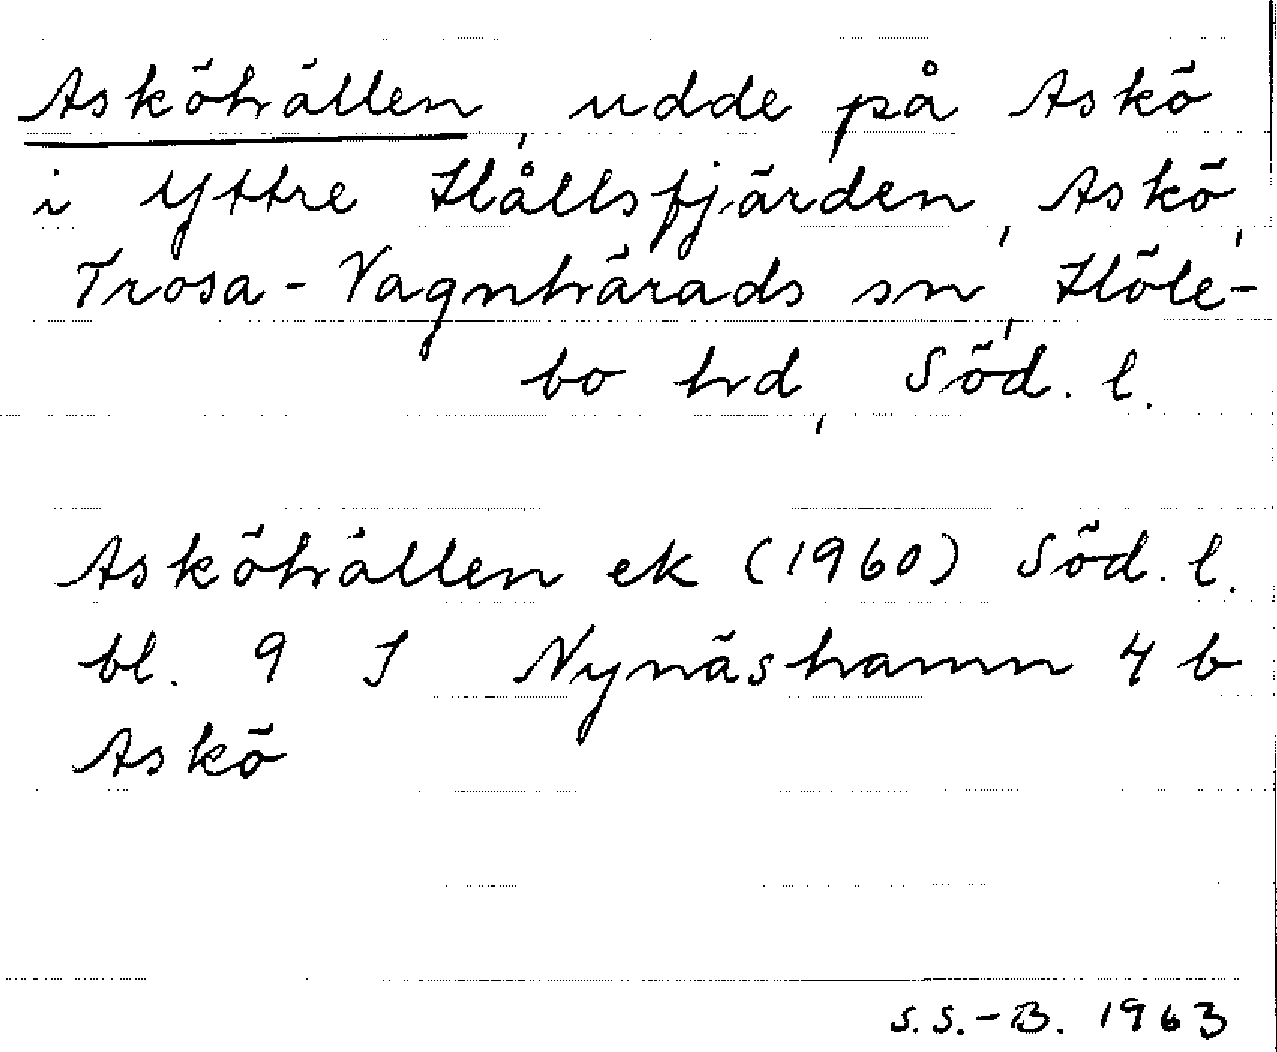 Asköhällen, udde på Askö
i Yttre Hållsfjärden, Askö,
Trosa-Vagnhärads sn, Höle-
bo hrd, Söd. l.
Asköhällen ek (1960) Söd. l.
bl. 9 I Nynäshamn 4 b
Askö
S.S.-B. 1963